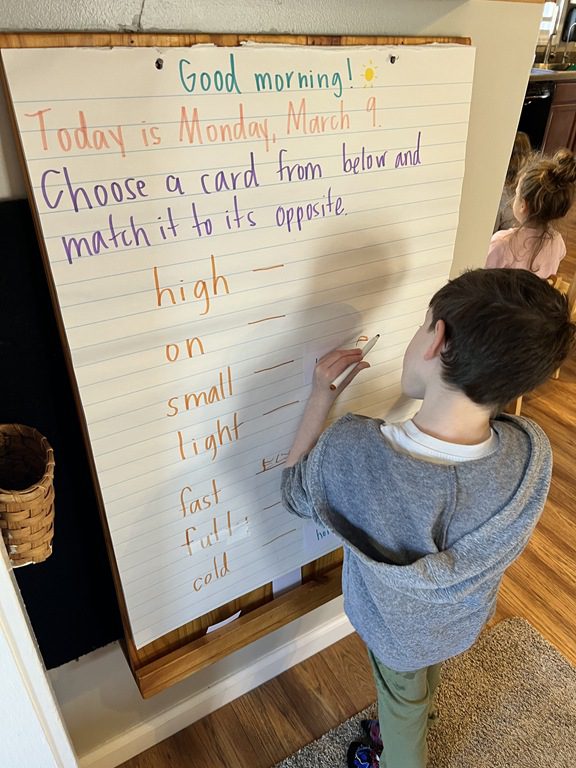 Good morning!
Today is Monday, March 9.
Choose a card from below and
match it to its opposite.
high
on
small
light
fast
full
cold